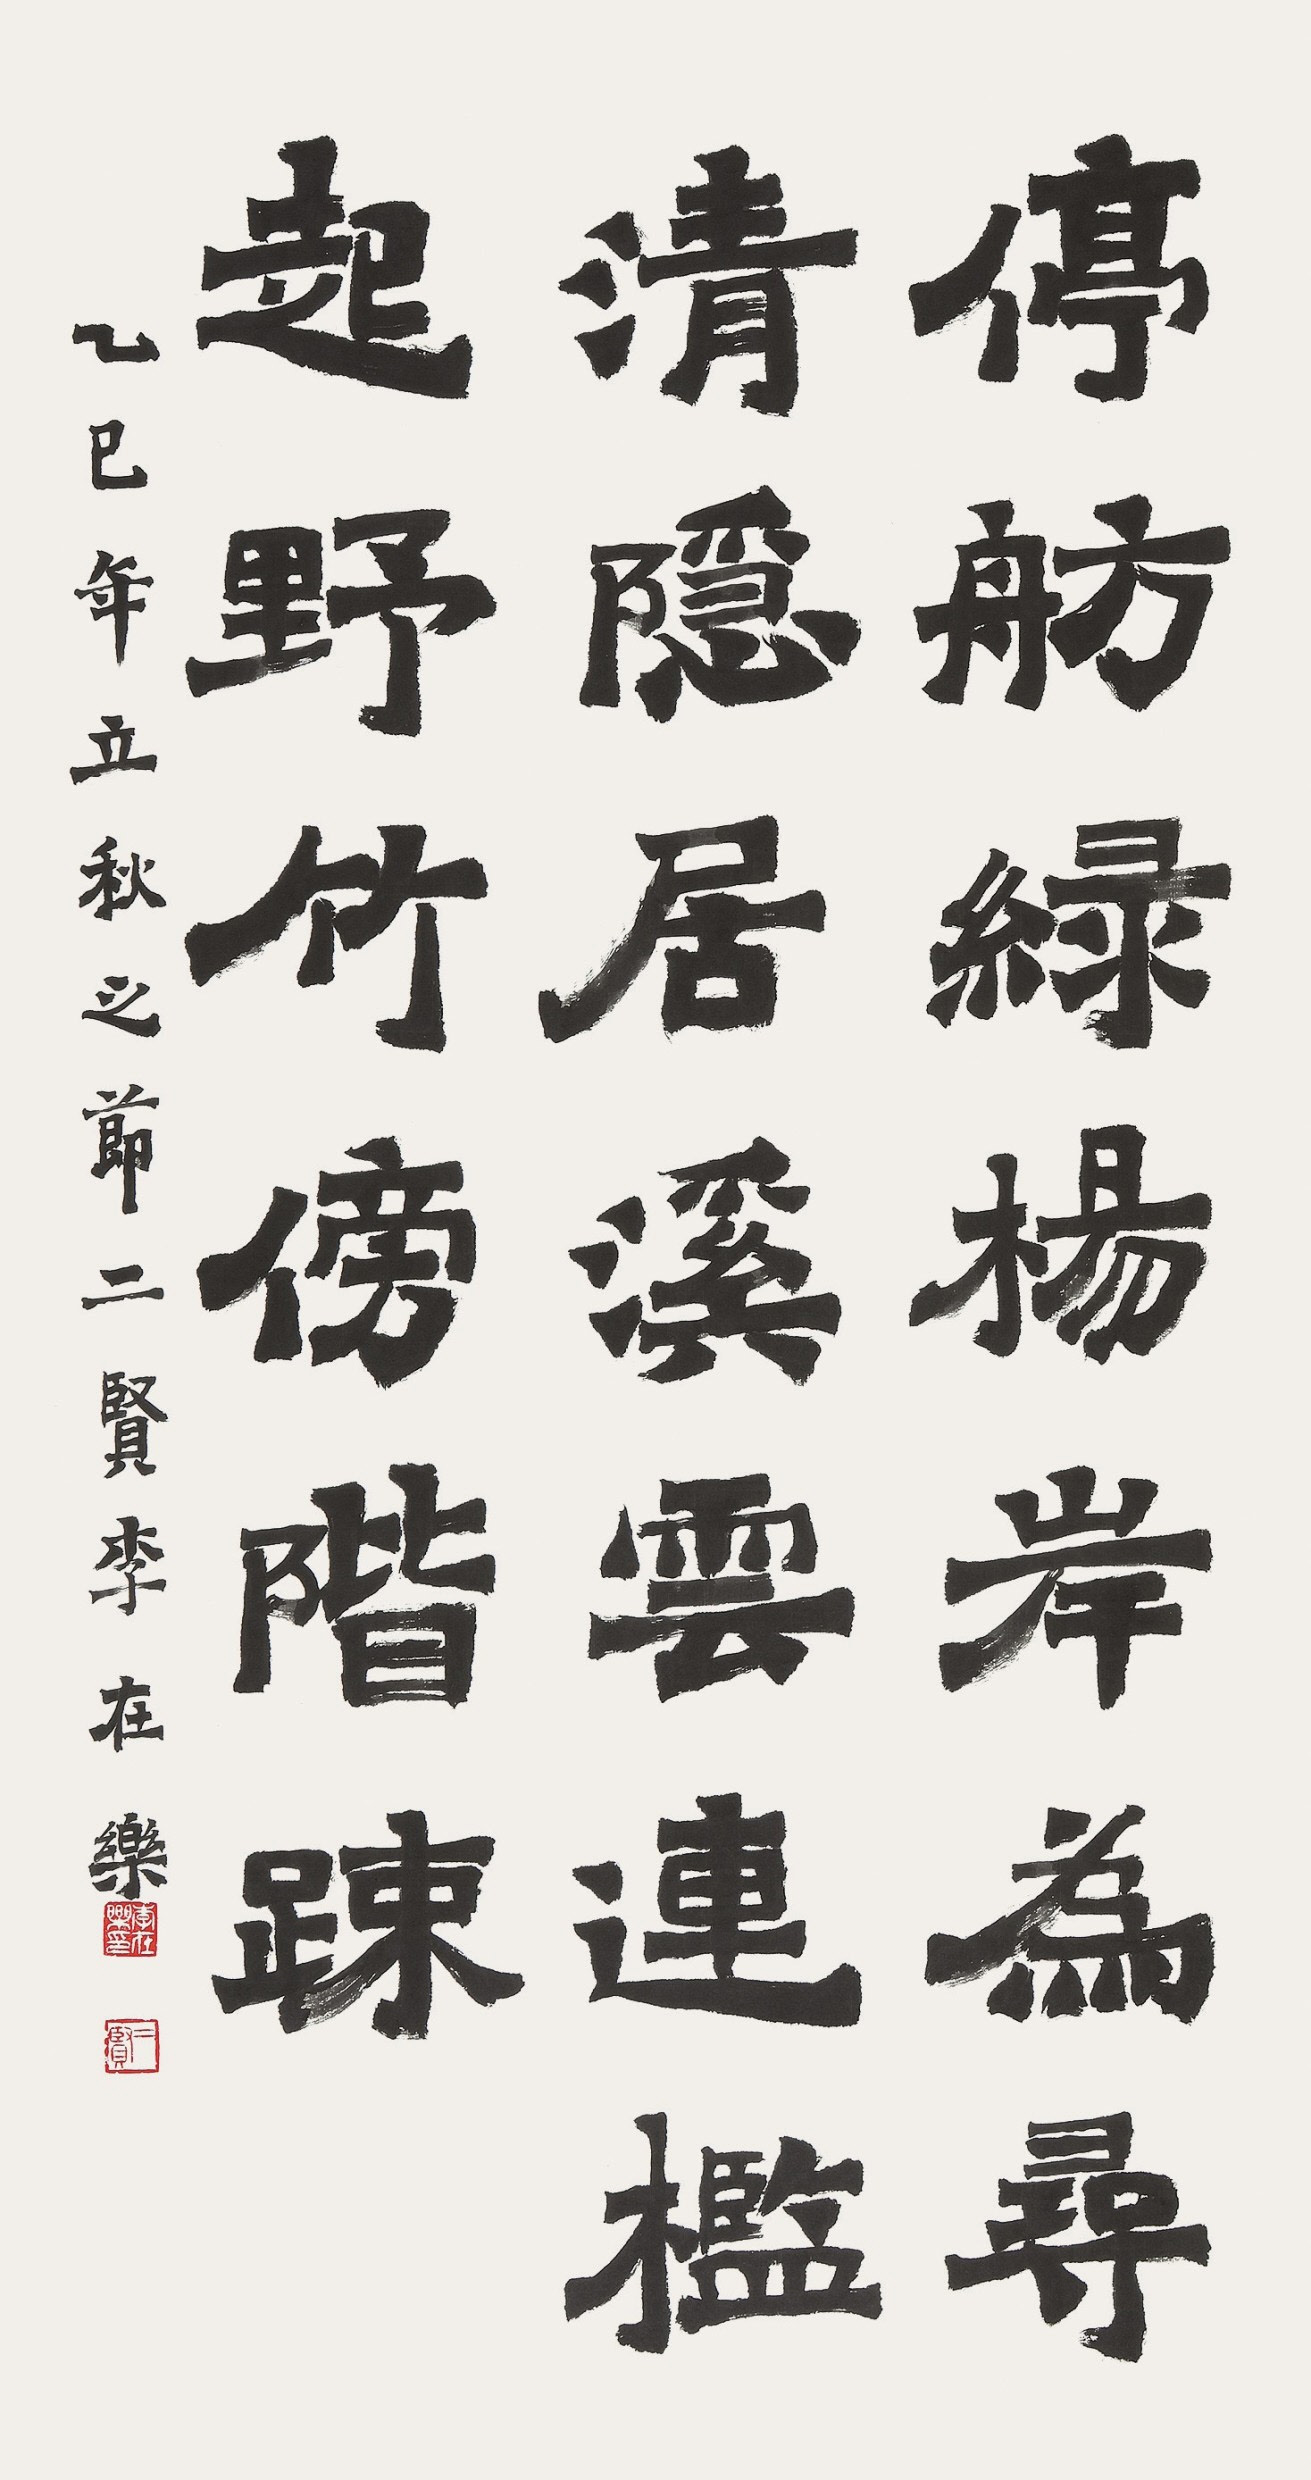 停舫綠楊岸為尋
清隱居溪雲連檻
起野竹傍階踈
乙巳年立秋之節二賢李在樂
李在樂印
二賢